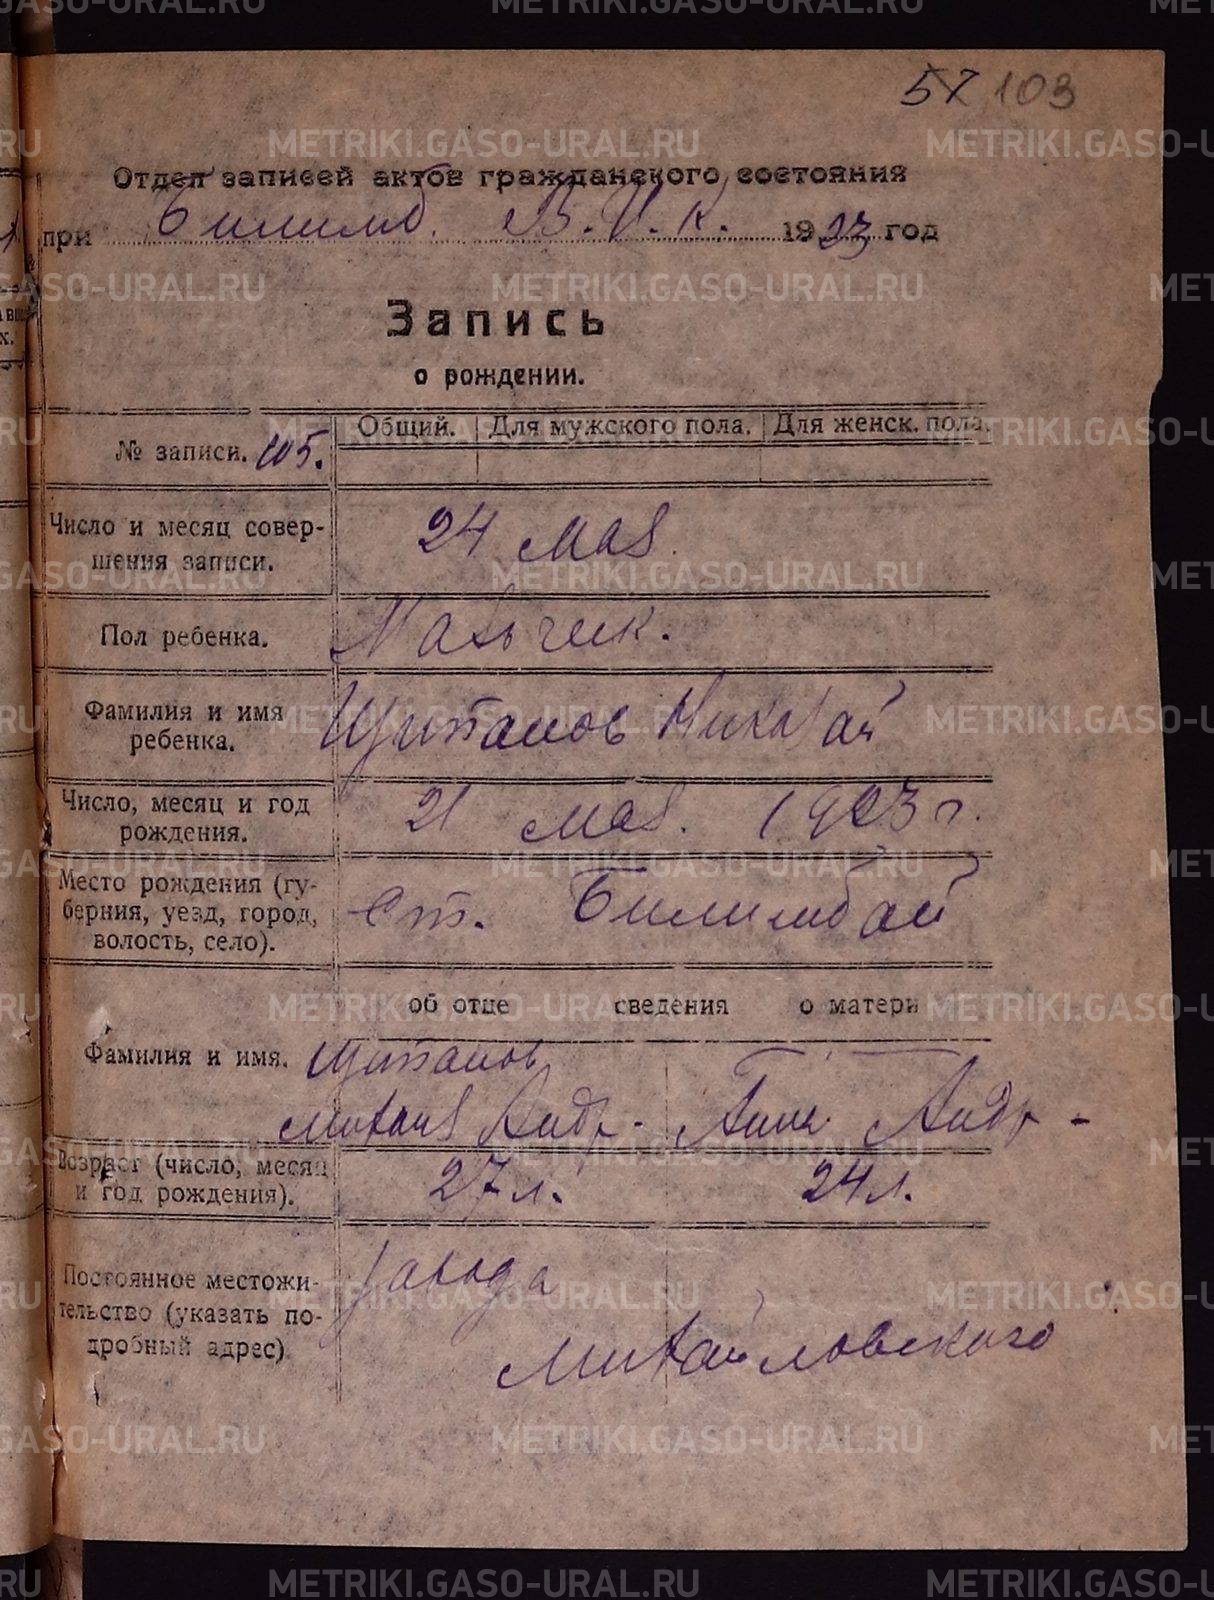 57 103
Отдел записей актов гражданского состояния
при Билимб. В.И.К. 1923 год
Запись
о рождении.
№ записи. 105.
Общий. Для мужского пола. Для женск. пола.
Число и месяц совер-
шения записи.
24 мая.
Пол ребенка.
Мальчик.
Фамилия и имя
ребенка.
Щипанов Николай
Число, месяц и год
рождения.
21 мая. 1923 г.
Место рождения (гу-
берния, уезд, город,
волость, село).
Ст. Билимбай
об отце сведения о матери
Фамилия и имя.
Щипанов
Михаил Андр- Анна Андр-
Возраст (число, месяц
и год рождения).
27 л. 24 л.
Постоянное местожи-
тельство (указать по-
дробный адрес)
завода
Михайловского
METRIKI.GASO-URAL.RU